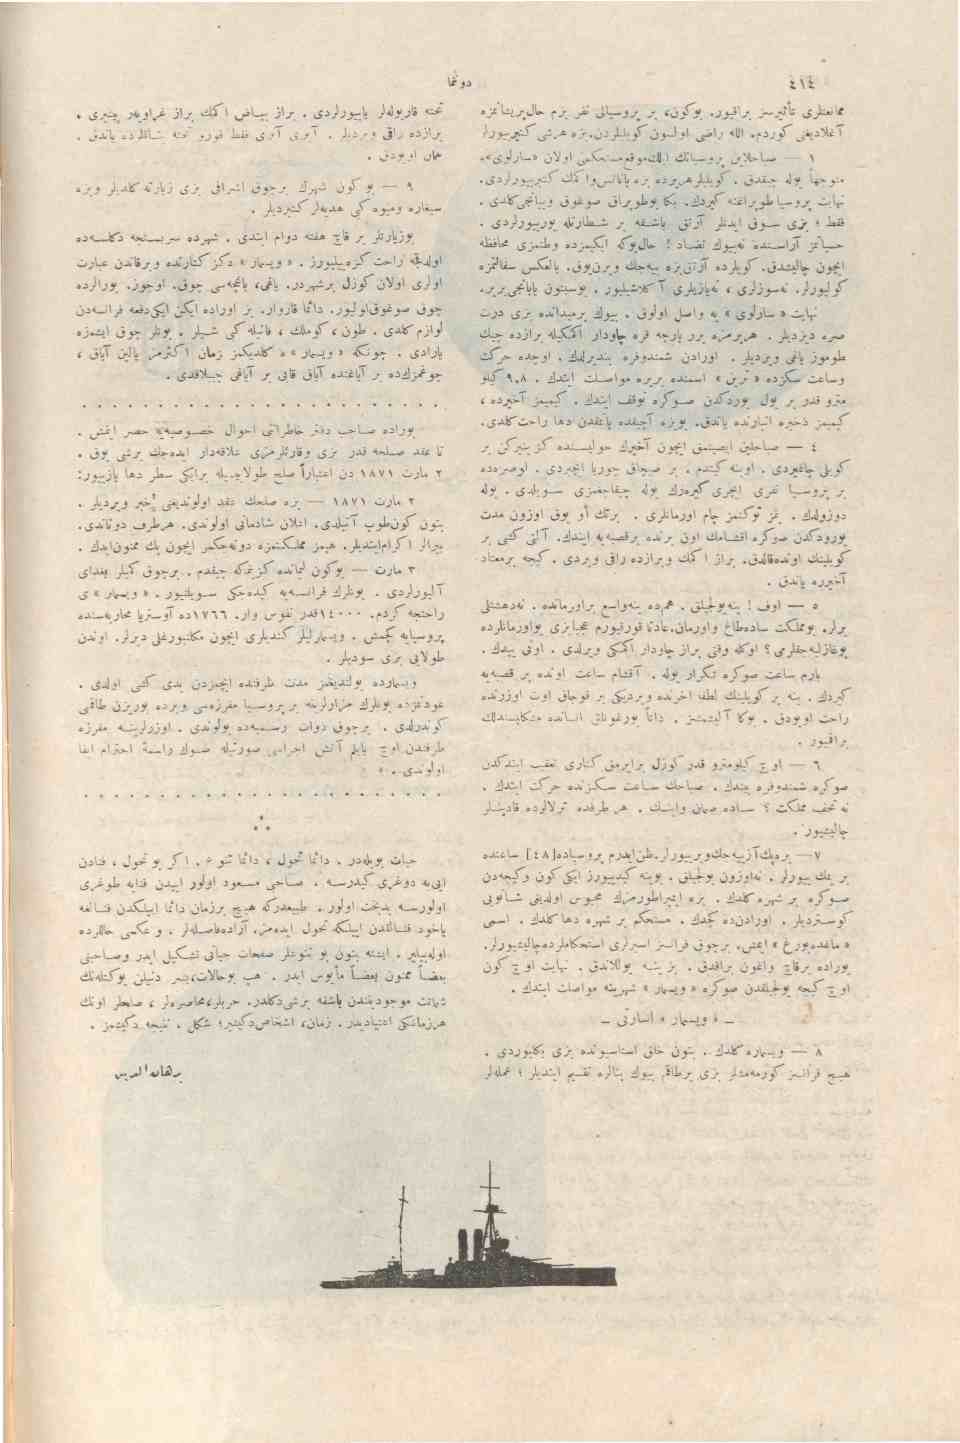 ٤١٤
دونما
ممانعتلری تأثیرسز براقیور. بوکون، بر پروسیالی نفر بزم حال پریشانمزه
آغلادیغنی کوردم. الله راضی اولسون کویلیلردن. بزه هرشی کتیریورلر
١ — صباحلاین پروسیانك ایلك موقع مستحکمی اولان «سارلوی» ه
متوجهاً یوله چیقدق. کویلیلر هر یرده بزه پاتاتس و اكمك کتیریورلردی.
نهایت پروسیا طوپراغنه کیردك. بکا بو طوپراق صوغوق و یبانجی کلدی.
فقط ؛ بزی سوق ایدنلر آرتق باشقه بر شطارتله یورییورلردی.
حسیاتمز آراسنده نه بیوك تضاد ! حال بوکه ایکیمزده وطنمزی محافظه
ایچون چالیشدق. کویلرده آرتق بزه ییه جك ویرن یوق. بالعکس سفالتمزه
کولیورلر. نه سوزلری ، نه یازیلری آکلاشیلیور. بوسبتون یابانجی یریز.
نهایت « سارلوی » یه واصل اولوق. بیوك بر میدانده بزی درت
صره دیزدیلر. هر بریمزه برر پارچه قره چاودار اکمکیله برازده چیك
طوموز یاغی ویردیلر. اورادن شمندوفره بندیرلدك. اوچده حرکت
وساعت سکزده « ترین » اسمنده بر یره مواصلت ایتدك. ٩،٨ کیلو
مترو قدر بر یول یورودکدن صوکره توقف ایتدك. کیمیمز آخیرده ،
کیمیمز ذخیره انبارنده یاتدق. بو یره آچیقده یاتمقدن دها راحت کلدی.
٤ — صباحلین ایصینمق ایچون آخیرك حولیسنده کزینیرکن بر
کویلی چاغیردی. اوینه کیتدم. بر صیجاق چوربا ایچیردی. اوصره ده
بر پروسیا نفری ایچری کیره رك یوله چیقاجغمزی سویلدی. یوله
دوزولدك. بتمز توکنمز چام اورمانلری. برتك او یوق اوزون مدت
یورودکدن صوکره اقشامك اون برنده بر قصبه یه ایندك. آلتی کشی بر
کویلینك اونده قالدق. براز اكمك و برازده راقی ویردی. کیجه بر معتاد
آخیرده یاتدق.
٥ — اوف ! ینه یولجیلق. همده ینه واسع بر اورمانده. نه دهشتلی
یرلر. بو مملکت ساده طاغ و اورمان. عادتا قورقیورم عجبا بزی بو اورمانلرده
بوغازلیه جقلرمی ؟ اوکله وقتی براز چاودار اکمکی ویرلدی. اونی ییدك.
یارم ساعت صوکره تکرار یوله. آقشام ساعت اونده بر قصبه یه
کیردك. ینه بر کویلینك لطفاً آخرنده ویردیکی بر قوجاق اوت اوزرنده
راحت اویودق. بوکا آلیشمشز. ذاتاً یورغونلق انسانده متکایسندلك
براقیور.
٦ — اوچ کیلومترو قدر کوزل بر ایرمق کناری تعقیب ایتدکدن
صوکره شمندوفره بیندك. صباحك ساعت سکزنده حرکت ایتدك.
نه تحف مملکت ؟ ساده صمان و اینك. هر طرفده ترلالرده قادینلر
چالیشیور.
٧ — بر دیك آز ییه جك ویریورلر. ظن ایدرم پروسیاده [٤٨] ساعتده
بر یمك ییورلر. نه اوزون یولجیلق. بوینه کیدییورز ایکی کون و کیجه دن
صوکره بر شهره کلدك. بزه ایمپراطورمزك محبوس اولدیغی شاتویی
کوستردیلر. اورادن ده کچدك. مستحکم بر شهره دها کلدك. اسمی
« ماغده بورغ » ایمش. بر چوق فرانسز اسیرلری استحکاملرده چالیشیورلر.
بوراده بر قاچ واغون براقدق. بز ینه یوللاندق. نهایت اوچ کون
اوچ کیجه یولجیلقدن صوکره « ویسمار » شهرینه مواصلت ایتدك.
— « ویسمار » اسارتی —
٨ — ویسماره کلدك. بتون خلق استاسیونده بزی بکلیوردی.
هیچ فرانسز کورمه مشلر بزی بر طاقم بیوك بنالره تقسیم ایتدیلر ؛ عمله لر
تخته قاریوله لر یاپییورلردی. براز بیاض اكمك براز پینیری ،
برازده راقی ویردیلر. آیری آیری فقط قورو تخته یاتدق.
همان اویودق.
٩ — بو کون شهرك بر چوق اشرافی بزی زیارته کلدیلر وبزه
سیغاره و میوه کبی هدیه لر کتیردیلر.
بو زیارتلر بر قاچ هفته دوام ایتدی. شهرده سربستجه دکلسه ده
اولدقجه راحت کزه بیلیورز. « ویسمار » دکز کنارنده و برقاندن عبارت
اولری اولان کوزل بر شهردر. باغی، باغچه سی چوق. اوجوز. بورالرده
چوق صوغوق اولیور. دائما قار وار. بز اوراده ایکن ایکی دفعه فرانسه دن
لوازم کلدی. طون ، کوملك ، فانیله کبی شیلر. بونلر چوق ایشمزه
یارادی. چونکه « ویسمار » ه کلدیکمز زمان اکثرمز یالین آیاق ،
چوغمزکده بر آیاغنده آیاق قابی بر آیاغی چیپلاقدی.
بوراده صاحب دفتر خاطراتنی احوال خصوصیه یه حصر ایتمش.
تا عقد صلحه قدر بزی و قارئلرمزی علاقه دار ایده جك برشی یوق.
٢ مارت ١٨٧١ دن اعتباراً صلح طولاییسیله بر ایکی سطر دها یازییور:
٢ مارت ١٨٧١ — بزه صلحك عقد اولوندیغنی خبر ویردیلر.
بتون کون طوپ آتیلدی. اعلان شادمانی اولوندی. هر طرف دوناندی.
بیرالر اکرام ایتدیلر. هپمز مملکتمزه دونه جکمز ایچون پك ممنون ایدك.
٣ مارت — بوکون لیمانده کزینمکه چیقدم. بر چوق کمیلر بغدای
آلیورلردی. بونلرك فرانسه یه کیده جکی سویلنیور. « ویسمار » ی
راحتجه کزدم. ١٤٠٠٠ قدر نفوس وار. ١٧٦٦ ده آوستریا محاربه سنده
پروسیایه کچمش. ویسمارلیلر کندیلری ایچون مكلنبورغلی دیرلر. اوندن
طولایی بزی سودیلر.
ویسمارده بولندیغمز مدت ظرفنده ایچمزدن یدی کشی اولدی.
عودتمزده بونلرك مزارلرینه بر پروسیا مفرزه سی و برده بوریزن طاقمی
کوندرلدی. بر چوق ذوات رسمیه ده بولوندی. اوزرلرینه مفرزه
طرفندن اوچ یایلم آتش اجراسی صورتیله صوك راسمهٔ احترام ایفا
اولوندی. »
حیات بویله در. دائما تحول ، دائما تنوع. اکر بو تحول ، فنادن
اییی یه دوغری کیدرسه. صاحبی مسعود اولور اییدن فنایه طوغری
اولورسه بدبخت اولور. طبیعیدرکه هیچ بر زمان دائما اییلکدن فنالغه
یاخود فنالقدن اییلکه تحول ایده مز. آراده فاصله لر ، و عکسی حاللرده
اوله بیلیر. ایشته بتون بو تنوعلر صفحات حیاتی تشکیل ایدر و صاحبنی
بعضاً ممنون بعضاً مأیوس ایدر. هپ بو حالات، بشر دنیلن بو کتله نك
ثباتت موجودیتندن باشقه برشی دکلدر. حربلر، محاصره لر ، صلحلر اونك
هر زمانکی اعتیادیدر. زمان، اشخاص دکیشیر؛ شکل ، نتیجه دکیشمز.
برهان الدین